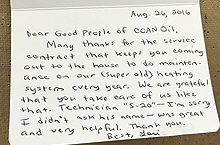 Aug. 26, 2016
Dear Good People of COAN Oil,
Many thanks for the service
contract that keeps you coming
out to the house to do mainten-
ance on our (super old) heating
systems every year. We are grateful
that you take care of us like
that. Technician "S-20" - I'm sorry
I didn't ask his name - was great
and very helpful. Thank you.
Best,